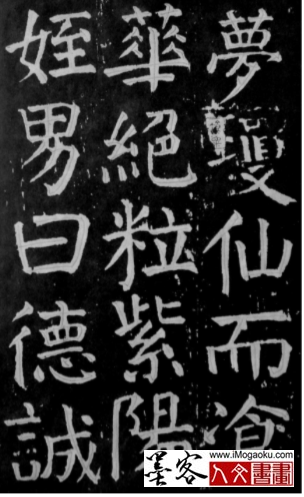 夢瓊仙而飡
華絕粒紫陽
姪男曰德誠
www.iMogaoku.com
墨客
人文書畫